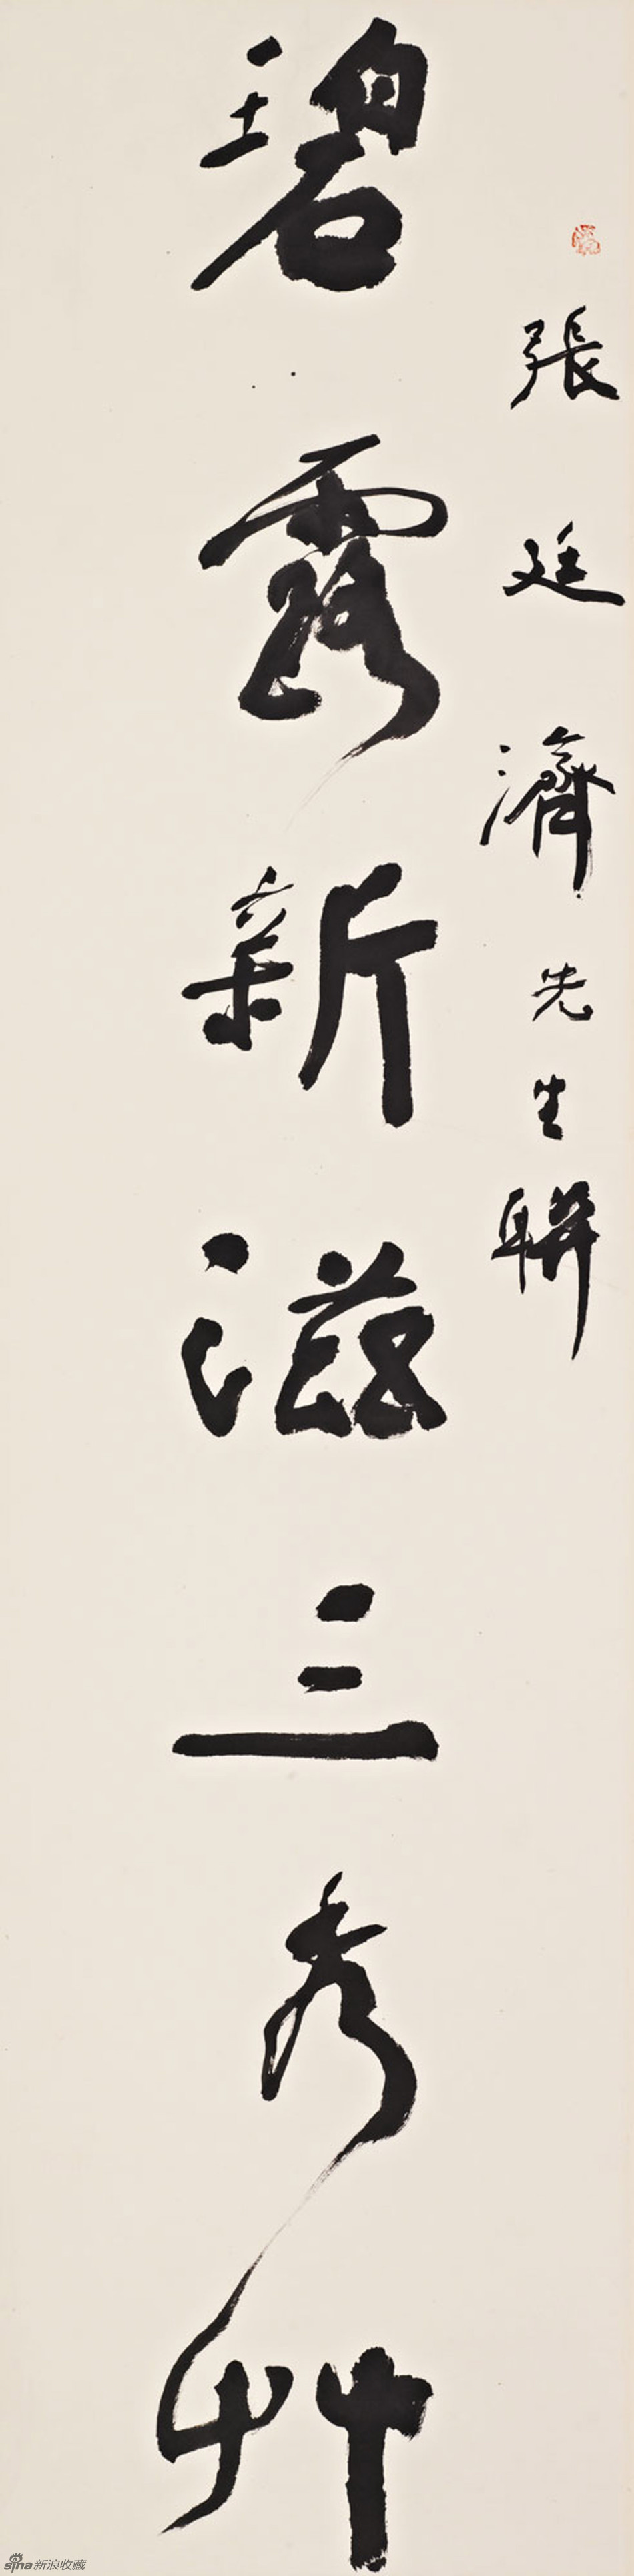 張廷濟先生聯
碧露新滋三秀艸
sina新浪收藏